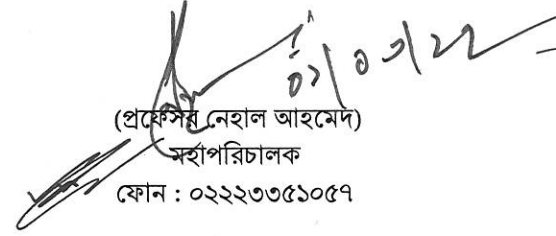 (প্রফেসর নেহাল আহমেদ)
মহাপরিচালক
ফোন : ০২২২৩৩৫১০৫৭